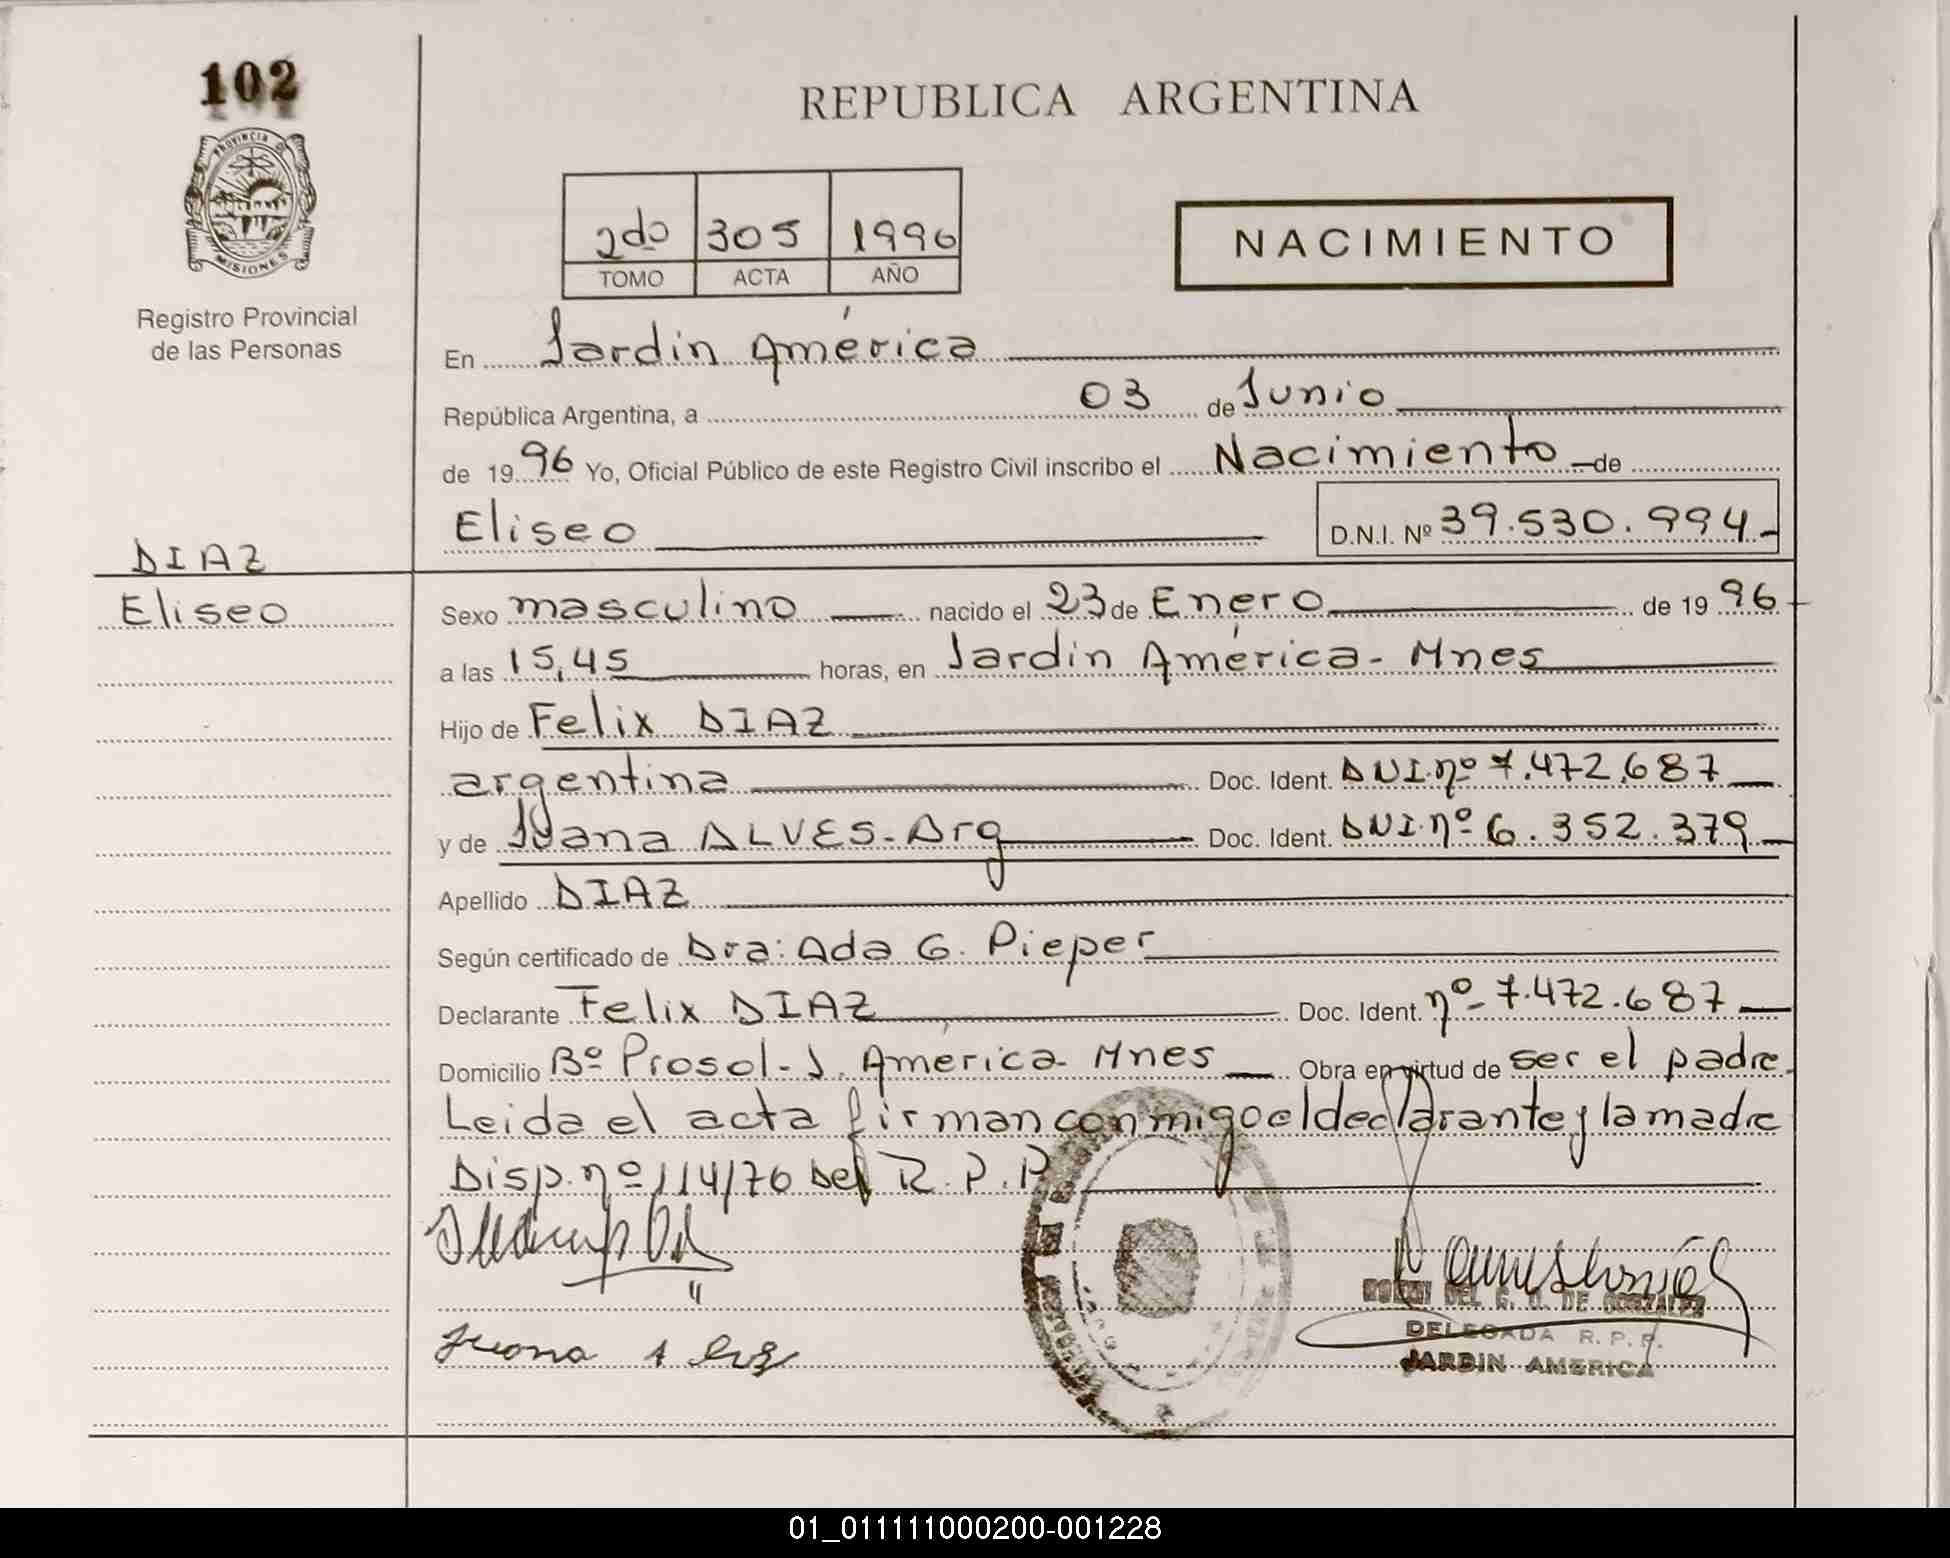 102
PROVINCIA DE
MISIONES
Registro Provincial
de las Personas
REPUBLICA ARGENTINA
2do 305 1996
TOMO ACTA AÑO
NACIMIENTO
En Jardin América
República Argentina, a 03 de Junio
de 1996 Yo, Oficial Público de este Registro Civil inscribo el Nacimiento de
Eliseo D.N.I. Nº 39.530.994
DIAZ
Eliseo
Sexo masculino nacido el 23 de Enero de 1996
a las 15,45 horas, en Jardin América - Mnes
Hijo de Felix DIAZ
argentina Doc. Ident. DNI.nº 7.472.687
y de Juana ALVES - Arg Doc. Ident. DNI.nº 6.352.379
Apellido DIAZ
Según certificado de Dra: Ada G. Pieper
Declarante Felix DIAZ Doc. Ident. nº 7.472.687
Domicilio Bº Prosol - J. América - Mnes Obra en virtud de ser el padre.
Leida el acta firman conmigo el declarante y la madre
Disp. nº 114/76 Del R.P.P.
DEL C. DE GONZALEZ
DELEGADA R.P.P.
Juana
JARDIN AMERICA
01_011111000200-001228